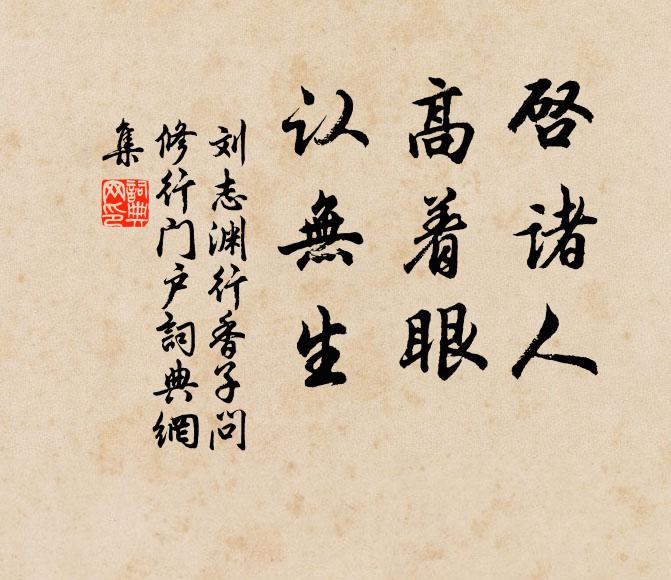 啓诸人
高着眼
认無生
刘志渊行香子问
修行门户詞典網
集
詞典
网印